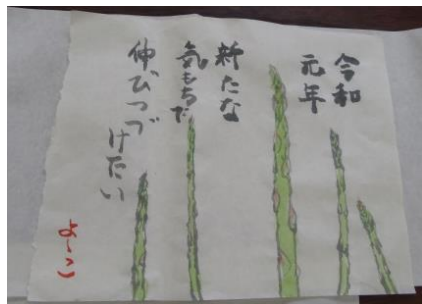 令和
元年
新たな
気もちで
伸びつづ
けたい
よーこ